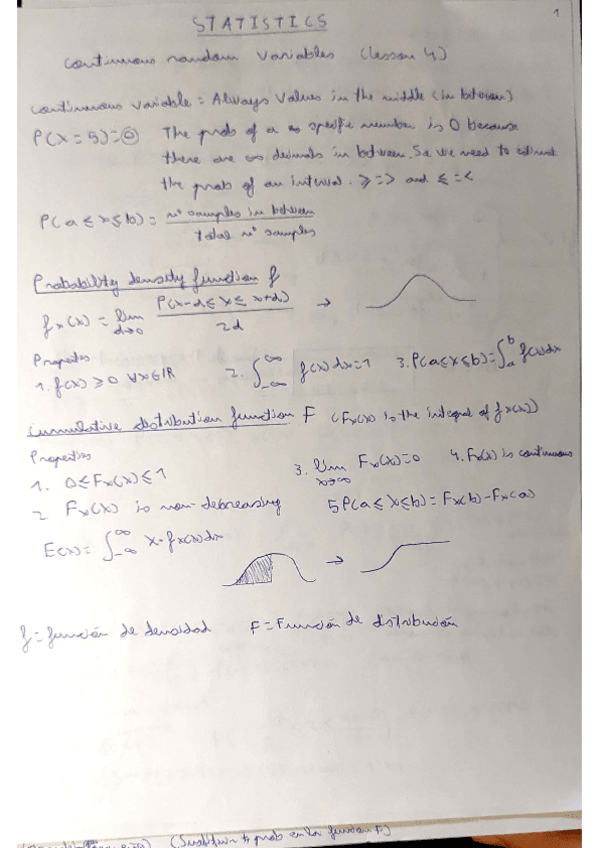 1
STATISTICS
Continuous random variables (lesson 4)
Continuous variable = Always values in the middle (in between)
P(X = 5) = 0 The prob of a specific number is 0 because
there are ∞ decimals in between. So we need to
the prob of an interval. ≥ = > and ≤ = <
P(a ≤ x ≤ b) = nº samples in between / total nº samples
Probability density function f
fx(x) = lim d→0 P(x-d ≤ X ≤ x+d) / 2d →
Properties
1. f(x) ≥ 0 ∀x∈ℝ 2. ∫_{-∞}^{∞} f(x)dx = 1 3. P(a ≤ X ≤ b) = ∫_a^b f(x)dx
Cumulative distribution function F (Fx(x) is the integral of fx(x))
Properties
1. 0 ≤ Fx(x) ≤ 1 3. lim x→∞ Fx(x) = 0 4. Fx(x) is continuous
2. Fx(x) is non-decreasing 5 P(a ≤ X ≤ b) = Fx(b) - Fx(a)
E(x) = ∫_{-∞}^{∞} x · fx(x)dx
→
f = función de densidad F = Función de distribución
prob en la funcion F)